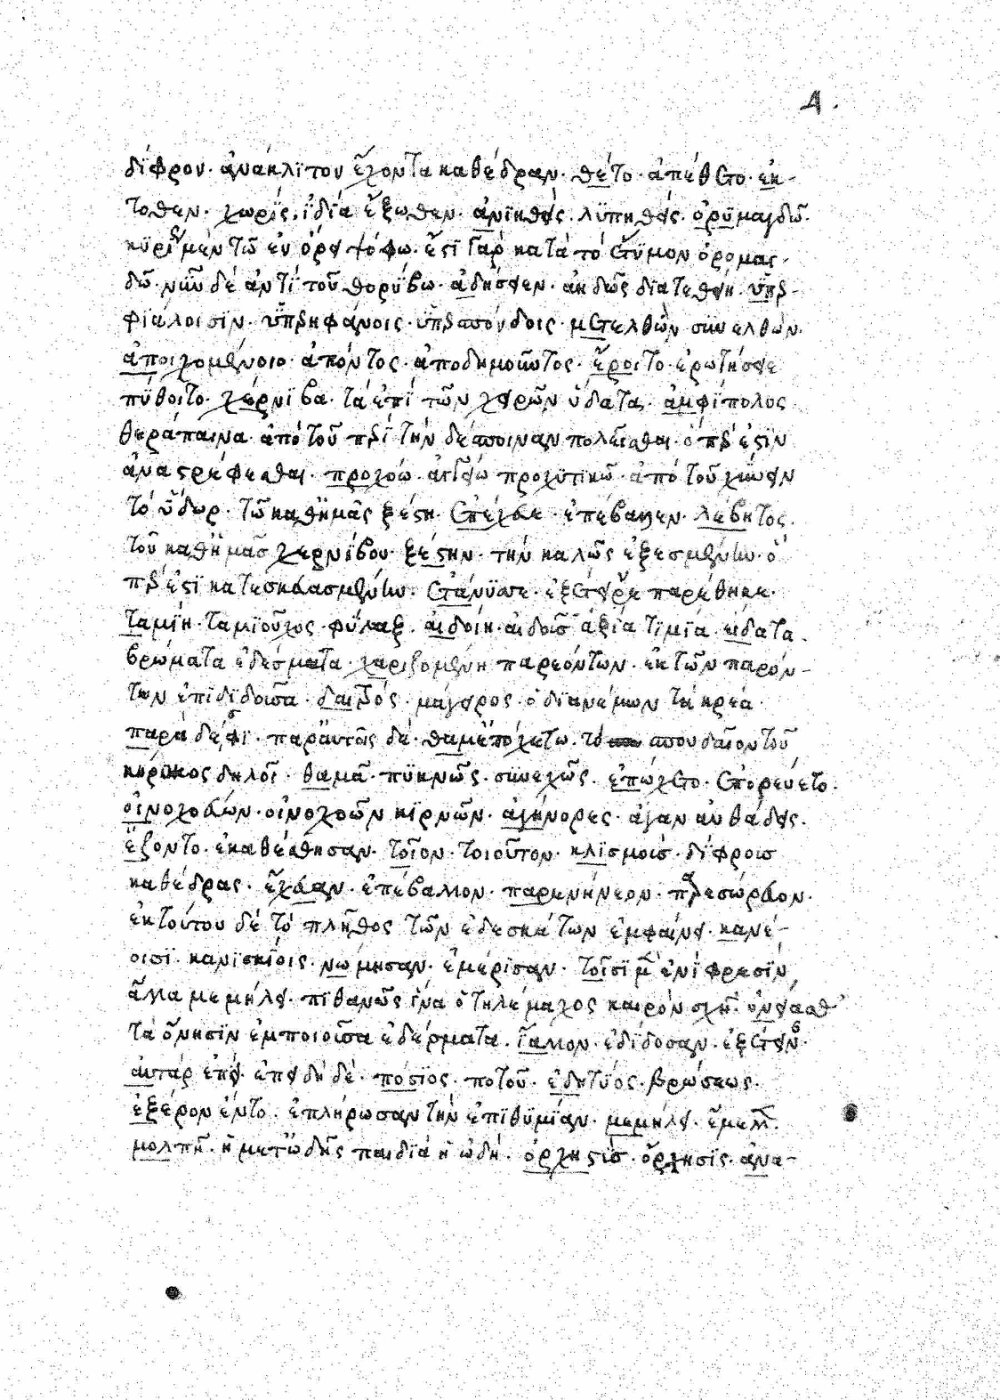 Δ.
δίφρον· ἀνάκλϊτον ἔχοντα καθέδραν· θέτο· ἀπέθετο· ἐκ-
τοθεν· χωρϊς· ϊδία ἔξωθεν· ἀνϊηθεὶς· λϋπηθεὶς· ὀρϋμαγδῶ·
μὲν τῶ ἐν ὄρει ψόφω· ἔστι γὰρ κατὰ τὸ ἔτϋμον ὀρομαγ-
δῶ· νῦν δὲ ἀντὶ τοῦ θορϋβω· ἀδήσειεν· ἀηδῶς διατεθείη· ὑπερ-
φϊάλοισϊν· ὑπερηφάνοις· μετελθὼν συνελθών·
ἀποιχομένοιο· ἀπόντος· ἀποδημοῦντος· ἔροιτο· ἐρωτήσειε
πύθοιτο· χέρνϊβα· τὰ ἐπὶ τῶν χειρῶν ὕδατα· ἀμφίπολος
θεράπαινα· ἀπὸ τοῦ περὶ τὴν δέσποιναν πολεῖσθαι· ὅπερ ἐστὶν
ἀναστρέφεσθαι· προχόω· ἀγγείω προχϋτικῶ· ἀπὸ τοῦ χέειν
τὸ ὕδωρ· τῶ καθ' ἡμᾶς ξέστη· ἐπέχευε· ἐπέβαλλεν· λέβητος·
τοῦ καθ' ἡμᾶς χερνίβου· ξέστην· τὴν καλῶς ἐξεσμένην· ὅ
περ ἐστὶ κατεσκευασμένην· ἐτάνϋσσε· παρέθηκε·
ταμίη· ταμϊοῦχος· φύλαξ· αἰδοίη· αἰδοῦς ἀξία τϊμϊα· εἴδατα·
βρώματα ἐδέσματα· χαριζομένη παρεόντων· ἐκ τῶν παρόν-
των ἐπϊδϊδοῦσα· δαιτρὸς· μάγειρος· ὁ δϊανέμων τὰ κρέα·
παρὰ δέ σφϊ· παρ' αὐτοῖς δὲ· τὸ σπουδαῖον τοῦ
κήρυκος δηλοῖ· θαμὰ· πϋκνῶς· συνεχῶς· ἐπώχετο· ἐπορεύετο·
οἰνοχοεύων· οἰνοχοῶν κϊρνῶν· ἀγήνορες· ἄγαν αὐθάδεις·
ἕζοντο· ἐκαθέσθησαν· τοῖον· τοιοῦτον· κλϊσμοὺς· δίφρους
καθέδρας· ἔχευαν· ἐπέβαλλον· παρενήνεον· παρεσώρευον·
ἐκ τούτου δὲ τὸ πλῆθος τῶν ἐδεσμάτων ἐμφαίνει· κανέ-
οισϊ· κανϊσκίοις· νώμησαν· ἐμέρϊσαν· τοῖσϊ μὲν ἐνὶ φρεσὶν
ἄλλα μεμήλει· πϊθανῶς ἵνα ὁ τηλέμαχος καιρὸν σχῆ·
τὰ ὄνησϊν ἐμποιοῦσα ἐδέσματα· ἴαλλον· ἐδίδοσαν· ἐξέτεινον·
αὐτὰρ ἐπεὶ· ἐπειδὴ δὲ· πόσϊος· ποτοῦ· ἐδητύος· βρώσεως·
ἐξ ἔρον ἕντο· ἐπλήρωσαν τὴν ἐπϊθϋμίαν· μεμήλει· ἔμελε·
μολπὴ· ἡ μετ' ὠδῆς παιδϊὰ ἢ ὠδή· ὀρχηστὺς· ὄρχησϊς· ἀνα-